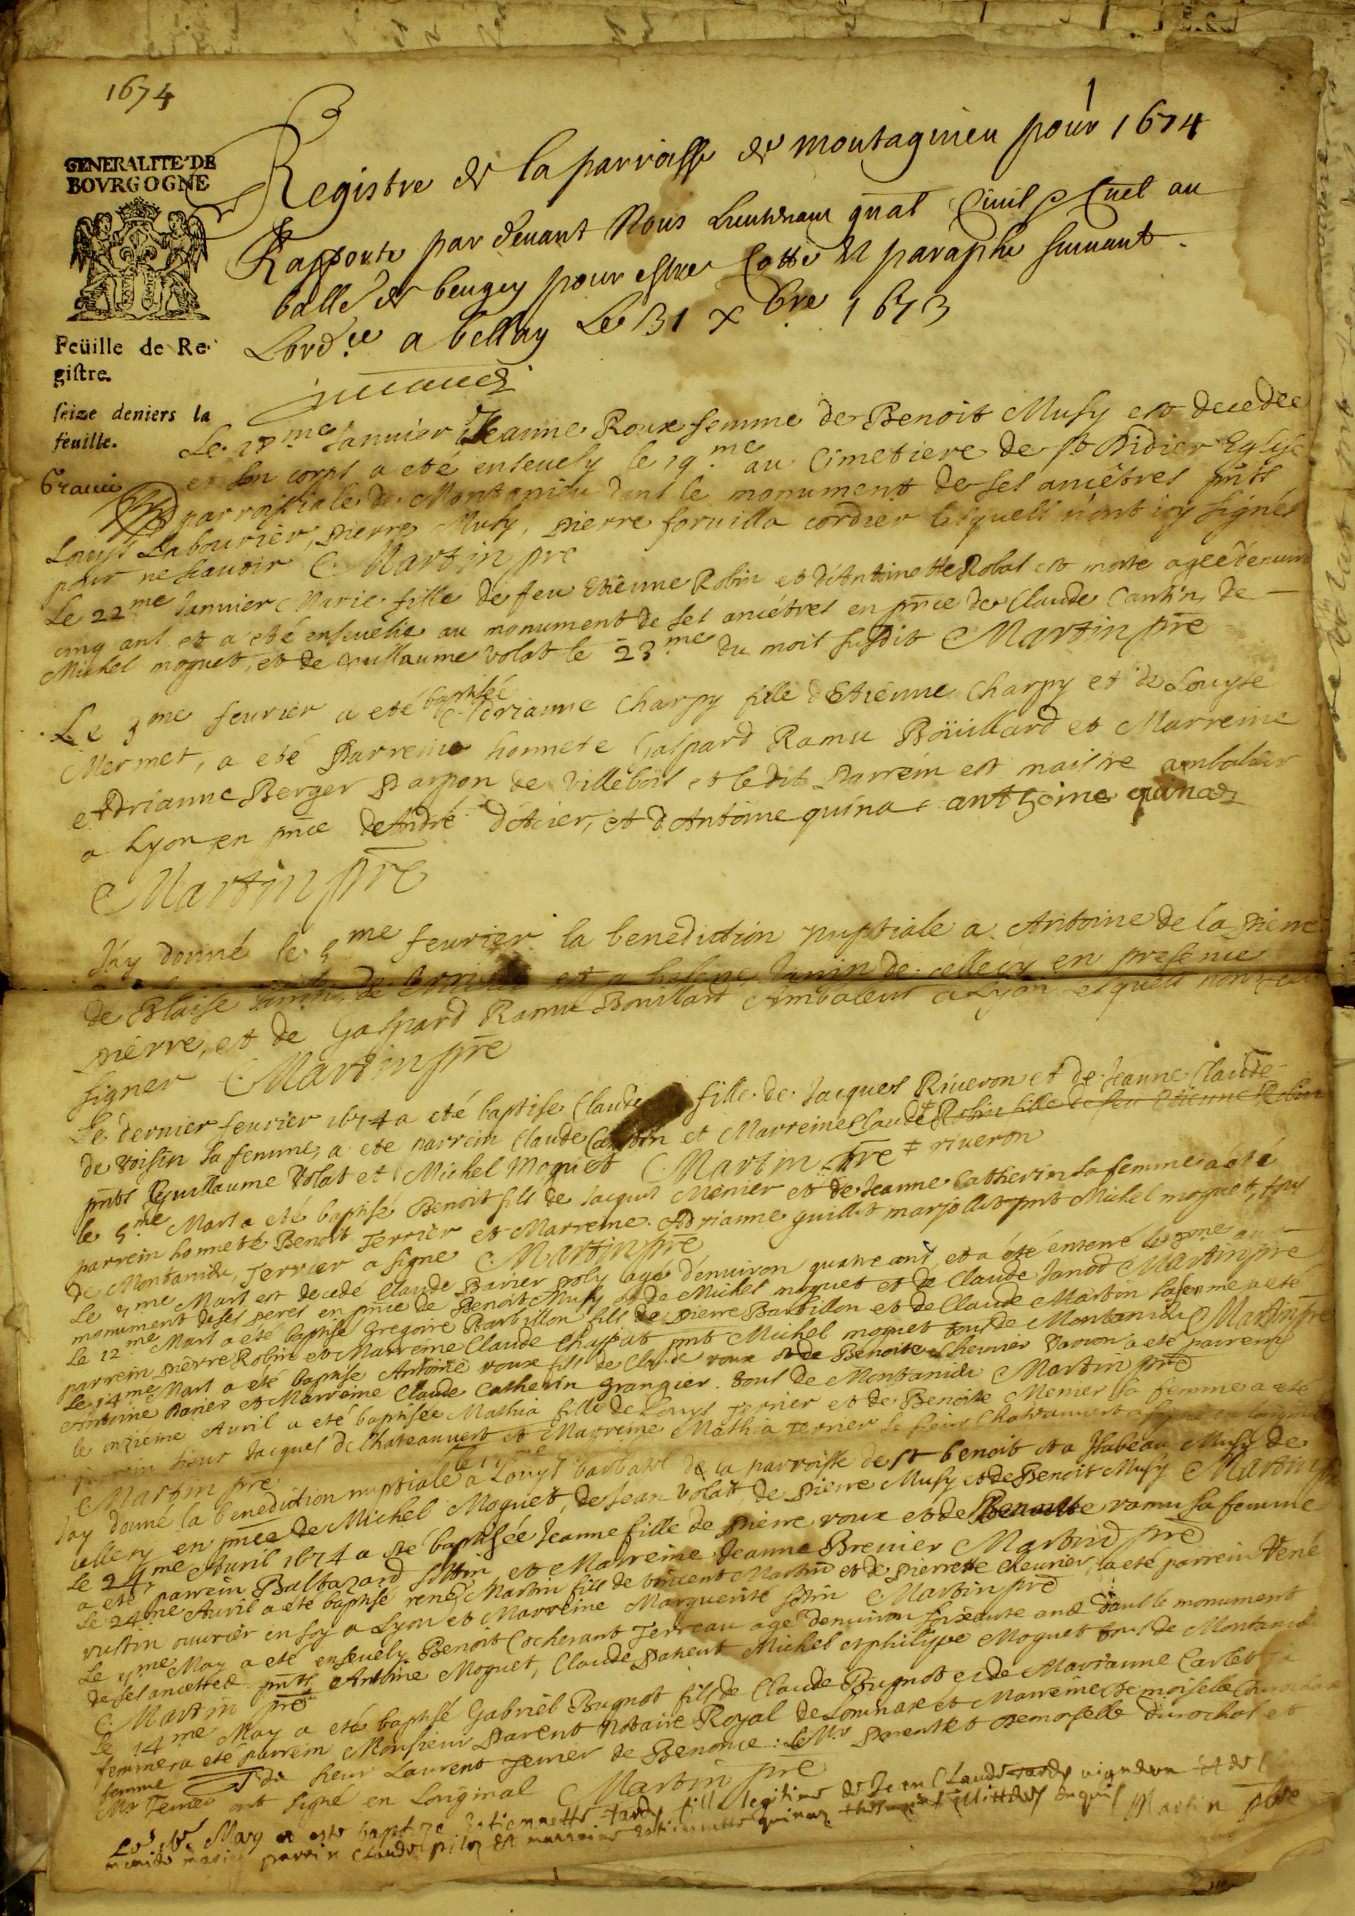 1674
1
GENERALITE DE
BOVRGOGNE
Feüille de Re-
gistre.
seize deniers la
feuille.
Registre de la parroisse de montagnieu pour 1674
Rapporte par devant Nous Lieutenant gnal Civil & Cnel au
balle de beugey pour estre Cotte et paraphe suivant
Lord.ce a bellay Le 31 xbre 1673
Le 18me Janvier Jeanne Roux femme de Benoit Musy est decedee
et son corps a eté ensevely le 19.me au Cimetiere de st Didier Eglise
parroissiale de Montanieu dans le monument de ses ancêtres pnts
Louys Labourier, pierre Musy, pierre forvilla cordier lesquels n'ont icy signés
pour ne scavoir Martin pre
Le 22me Janvier Marie fille de feu Etienne Robin et d'Antoinette Robat est morte agée d'environ
cinq ans et a eté ensevelie au monument de ses ancétres en pnce de Claude Cantin, de
Michel moguet, et de Guillaume Volat le 23.me du mois susdit Martin pre
Le 3me fevrier a eté baptisée Adrianne Charpy fille d'Etienne Charpy et de Louyse
Mermet, a eté parrein honnete Gaspard Ramu Boüillard et Marreine
Adrianne Berger Parpon de Villebois et ledit parrein est maistre ambaleur
a Lyon en pnce d'André d'Acier, et d'Antoine quina anthoine quinaz
Martin pre
J'ay donné le 5me fevrier la benediction nuptiale a Antoine de la pierre
de Blaise et a helene Janin de cellecy en presence
pierre, et de Gaspard Ramu Bouillard Ambaleur a Lyon lesquels n'ont sceu
signer Martin pre
Le dernier fevrier 1674 a eté baptise Claude fille de Jacques Riveron et de Jeanne Claude
de Voisin sa femme, a eté parrein Claude Cantin et Marreine Claude Robin fille de feu Etienne Robin
pnts Guillaume Volat et Michel Moguet Martin pre ‡ riveron
le 5.me Mars a eté baptisé Benoit fils de Jacques Menier et de Jeanne Catherin sa femme a eté
parrein honneté Benoit Terrier et Marreine Adrianne guillet marjollet pnt Michel moguet, tous
de Montanieu, Terrier a signe Martin pre
Le me Mars est decedé Claude Barier poly agé d'environ quatre ans, et a eté enterré le me au
monument de ses peres en pnce de Benoit Musy et de Michel moguet et de Claude Janod Martin pre
Le 12me Mars a eté baptisé Gregoire Barbillon fils de pierre Barbillon et de Claude Martin sa femme a eté
parrein pierre Robin et Marreine Claude Chappat pnt Michel moguet tous de Montanieu Martin pre
Le 14me Mars a eté baptisé Antoine roux fils de Claude roux et de Benoite chevrier a eté parrein
Antoine Barier et Marreine Claude Catherin grangier tous de Montanieu Martin pre
le onzieme Avril a eté baptisée Mathia fille de Louys Terrier et de Benoite Menier sa femme a eté
parrein sieur Jacques de Chateauvert et Marreine Mathia Terrier le sieur Chateauvert a signé
Martin pre
J'ay donné la benediction nuptiale a Louys barbat de la parroisse de st benoit et a Isabeau Musy de
cellecy en pnce de Michel Moguet, de Jean Volat de pierre Musy et de Benoit Musy Martin pre
Le 24me Avril 1674 a eté baptisée Jeanne fille de pierre roux et de Benoite ramu sa femme
a eté parrein Baltazard sottin et Marreine Jeanne Brenier Martin pre
Le 24me Avril a eté baptisé rené Martin fils de Vincent Martin et de pierrette chevrier, a eté parrein René
rustin ouvrier en soy a Lyon et Marreine Marguerite sotin Martin pre
Le me May a eté ensevely Benoit Cocherant Terreau agé d'environ soixante ans dans le monument
de ses ancetres pnts Antoine Moguet, Claude parent Michel et philippe Moguet tous de Montanieu
Martin pre
Le 14me May a eté baptisé Gabriel Bugnot fils de Claude Bugnot et de Marianne Carlet
femme a eté parrein Monsieur parent Notaire Royal de Lounaz et Marreine Demoiselle
femme du sieur Laurent Terrier de Benonce. Mr parent et demoiselle durochat et
Mr Terrier ont signé en Loriginal Martin pre
Le May a este baptize Estiennette tardy fille legitime de Jean Claude tardy vigneron et de
parrin Claude piloz et marreine estiennette quinaz Martin pbre